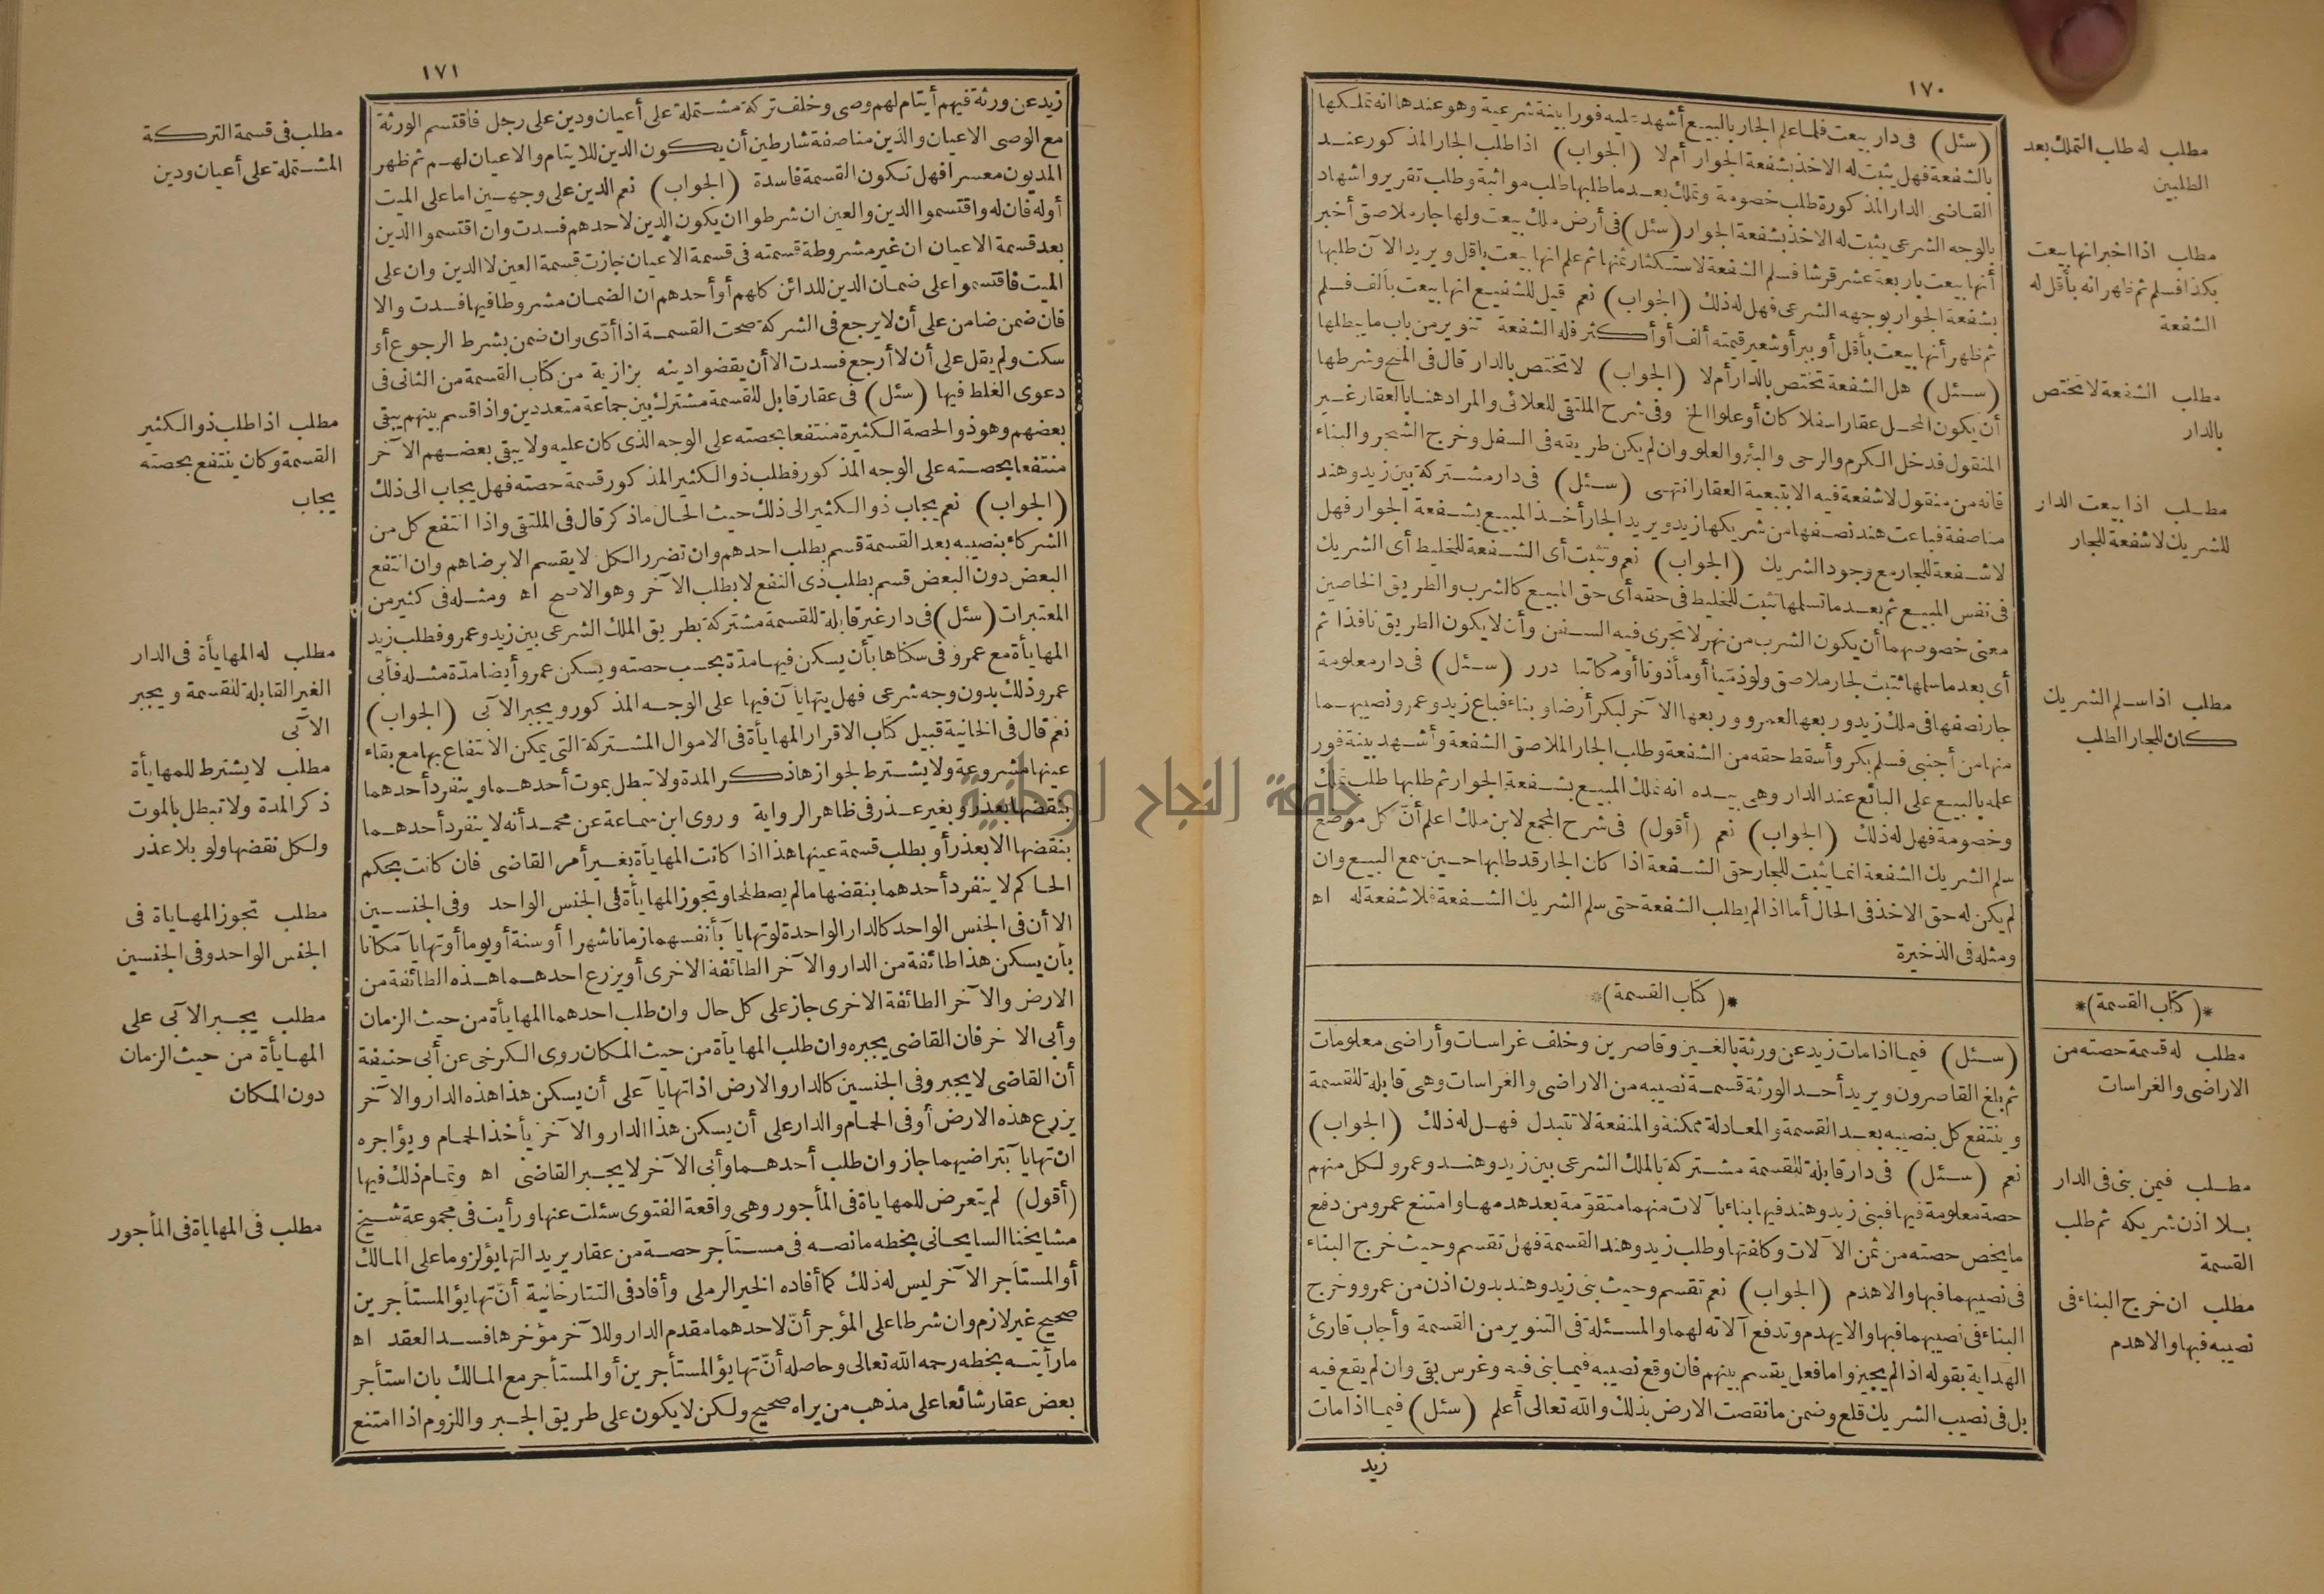 ١٧٠
(سئل) فى دار بيعت فلما علم الجار بالبيع أشهد عليه فورا بينة شرعية وهو عندها انه تملكها
بالشفعة فهل يثبت له الاخذ بشفعة الجوار أم لا (الجواب) اذا طلب الجار المذكور عند
القاضى الدار المذكورة طلب خصومة وتملك بعد ما طلبها طلب مواثبة وطلب تقرير واشهاد
بالوجه الشرعى يثبت له الاخذ بشفعة الجوار (سئل) فى أرض ملك بيعت ولها جار ملاصق أخبر
أنها بيعت باربعة عشر قرشا فسلم الشفعة لاستكثار ثمنها ثم علم انها بيعت باقل ويريد الآن طلبها
بشفعة الجوار بوجهه الشرعى فهل له ذلك (الجواب) نعم قيل للشفيع انها بيعت بألف فسلم
ثم ظهر أنها بيعت بأقل أو ببر أو شعير قيمته ألف أو أكثر فله الشفعة تنوير من باب ما يبطلها
(سئل) هل الشفعة تختص بالدار أم لا (الجواب) لا تختص بالدار قال فى المنح وشرطها
أن يكون المحل عقارا سفلا كان أو علوا الخ وفى شرح الملتقى للعلائى والمراد هنا بالعقار غير
المنقول فدخل الكرم والرحى والبئر والعلو وان لم يكن طريقه فى السفل وخرج الشجر والبناء
فانه من منقول لا شفعة فيه الا بتبعية العقار انتهى (سئل) فى دار مشتركة بين زيد وهند
مناصفة فباعت هند نصفها من شريكها زيد ويريد الجار أخذ المبيع بشفعة الجوار فهل
لا شفعة للجار مع وجود الشريك (الجواب) نعم وتثبت أى الشفعة للخليط أى الشريك
فى نفس المبيع ثم بعد ما تسلمها تثبت للخليط فى حقه أى حق المبيع كالشرب والطريق الخاصين
معنى خصوصهما أن يكون الشرب من نهر لا تجرى فيه السفن وأن لا يكون الطريق نافذا ثم
أى بعد ما سلمها تثبت لجار ملاصق ولو ذميا أو مأذونا أو مكاتبا درر (سئل) فى دار معلومة
جار نصفها فى ملك زيد وربعها لعمرو وربعها الآخر لبكر أرضا وبناء فباع زيد وعمرو نصيبهما
منها من أجنبى فسلم بكر وأسقط حقه من الشفعة وطلب الجار الملاصق الشفعة وأشهد بينة فور
علمه بالبيع على البائع عند الدار وهى بيده انه تملك المبيع بشفعة الجوار ثم طلبها طلب تملك
وخصومة فهل له ذلك (الجواب) نعم (أقول) فى شرح المجمع لابن ملك اعلم أن كل موضع
سلم الشريك الشفعة انما يثبت للجار حق الشفعة اذا كان الجار قد طلبها حين سمع البيع وان
لم يكن له حق الاخذ فى الحال أما اذا لم يطلب الشفعة حتى سلم الشريك الشفعة فلا شفعة له اه
ومثله فى الذخيرة
*(كتاب القسمة)*
(سئل) فيما اذا مات زيد عن ورثة بالغين وقاصرين وخلف غراسات وأراضى معلومات
ثم بلغ القاصرون ويريد أحد الورثة قسمة نصيبه من الاراضى والغراسات وهى قابلة للقسمة
وينتفع كل بنصيبه بعد القسمة والمعادلة ممكنة والمنفعة لا تتبدل فهل له ذلك (الجواب)
نعم (سئل) فى دار قابلة للقسمة مشتركة بالملك الشرعى بين زيد وهند وعمرو لكل منهم
حصة معلومة فيها فبنى زيد وهند فيها بناء بآلات منهما متقومة بعد هدمها وامتنع عمرو من دفع
ما يخص حصته من ثمن الآلات وكلفتها وطلب زيد وهند القسمة فهل تقسم وحيث خرج البناء
فى نصيبهما فبها والا هدم (الجواب) نعم تقسم وحيث بنى زيد وهند بدون اذن من عمرو وخرج
البناء فى نصيبهما فبها والا يهدم وتدفع آلاته لهما والمسئلة فى التنوير من القسمة وأجاب قارئ
الهداية بقوله اذا لم يجيزوا ما فعل يقسم بينهم فان وقع نصيبه فيما بنى فيه وغرس بقى وان لم يقع فيه
بل فى نصيب الشريك قلع وضمن ما نقصت الارض بذلك والله تعالى أعلم (سئل) فيما اذا مات
زيد
مطلب له طلب التملك بعد
الطلبين
مطلب اذا اخبر انها بيعت
بكذا فسلم ثم ظهر انه بأقل له
الشفعة
مطلب الشفعة لا تختص
بالدار
مطلب اذا بيعت الدار
للشريك لا شفعة للجار
مطلب اذا سلم الشريك
كان للجار الطلب
*(كتاب القسمة)*
مطلب له قسمة حصته من
الاراضى والغراسات
مطلب فيمن بنى فى الدار
بلا اذن شريكه ثم طلب
القسمة
مطلب ان خرج البناء فى
نصيبه فبها والا هدم
١٧١
زيد عن ورثة فيهم أيتام لهم وصى وخلف تركة مشتملة على أعيان ودين على رجل فاقتسم الورثة
مع الوصى الاعيان والدين مناصفة شارطين أن يكون الدين للايتام والاعيان لهم ثم ظهر
المديون معسرا فهل تكون القسمة فاسدة (الجواب) نعم الدين على وجهين اما على الميت
أو له فان له واقتسموا الدين والعين ان شرطوا ان يكون الدين لاحدهم فسدت وان اقتسموا الدين
بعد قسمة الاعيان ان غير مشروطة قسمته فى قسمة الاعيان جازت قسمة العين لا الدين وان على
الميت فاقتسموا على ضمان الدين للدائن كلهم أو أحدهم ان الضمان مشروطا فيها فسدت والا
فان ضمن ضامن على أن لا يرجع فى الشركة صحت القسمة اذا أدى وان ضمن بشرط الرجوع أو
سكت ولم يقل على أن لا أرجع فسدت الا أن يقضوا دينه بزازية من كتاب القسمة من الثانى فى
دعوى الغلط فيها (سئل) فى عقار قابل للقسمة مشترك بين جماعة متعددين واذا قسم بينهم يبقى
بعضهم وهو ذو الحصة الكثيرة منتفعا بحصته على الوجه الذى كان عليه ولا يبقى بعضهم الآخر
منتفعا بحصته على الوجه المذكور فطلب ذو الكثير المذكور قسمة حصته فهل يجاب الى ذلك
(الجواب) نعم يجاب ذو الكثير الى ذلك حيث الحال ما ذكر قال فى الملتقى واذا انتفع كل من
الشركاء بنصيبه بعد القسمة قسم بطلب احدهم وان تضرر الكل لا يقسم الا برضاهم وان انتفع
البعض دون البعض قسم بطلب ذى النفع لا بطلب الآخر وهو الاصح اه ومثله فى كثير من
المعتبرات (سئل) فى دار غير قابلة للقسمة مشتركة بطريق الملك الشرعى بين زيد وعمرو فطلب زيد
المهايأة مع عمرو فى سكناها بأن يسكن فيها مدة بحسب حصته ويسكن عمرو أيضا مدة مثله فأبى
عمرو ذلك بدون وجه شرعى فهل يتهايآن فيها على الوجه المذكور ويجبر الآبى (الجواب)
نعم قال فى الخانية قبيل كتاب الاقرار المهايأة فى الاموال المشتركة التى يمكن الانتفاع بها مع بقاء
عينها مشروعة ولا يشترط لجوازها ذكر المدة ولا تبطل بموت أحدهما وينفرد أحدهما
بنقضها بعذر وبغير عذر فى ظاهر الرواية وروى ابن سماعة عن محمد أنه لا ينفرد أحدهما
بنقضها الا بعذر أو بطلب قسمة عينها هذا اذا كانت المهايأة بغير أمر القاضى فان كانت بحكم
الحاكم لا ينفرد أحدهما بنقضها ما لم يصطلحا وتجوز المهايأة فى الجنس الواحد وفى الجنسين
الا أن فى الجنس الواحد كالدار الواحدة لو تهايآ بأنفسهما زمانا شهرا أو سنة أو يوما أو تهايآ مكانا
بأن يسكن هذا طائفة من الدار والآخر الطائفة الاخرى أو يزرع احدهما هذه الطائفة من
الارض والآخر الطائفة الاخرى جاز على كل حال وان طلب احدهما المهايأة من حيث الزمان
وأبى الآخر فان القاضى يجبره وان طلب المهايأة من حيث المكان روى الكرخى عن أبى حنيفة
أن القاضى لا يجبر وفى الجنسين كالدار والارض اذا تهايآ على أن يسكن هذا هذه الدار والآخر
يزرع هذه الارض أو فى الحمام والدار على أن يسكن هذا الدار والآخر يأخذ الحمام ويؤاجره
ان تهايآ بتراضيهما جاز وان طلب أحدهما وأبى الآخر لا يجبر القاضى اه وتمام ذلك فيها
(أقول) لم يتعرض للمهايأة فى المأجور وهى واقعة الفتوى سئلت عنها ورأيت فى مجموعة شيخ
مشايخنا السايحانى بخطه ما نصه فى مستأجر حصة من عقار يريد التهايؤ لزوما على المالك
أو المستأجر الآخر ليس له ذلك كما أفاده الخير الرملى وأفاد فى التتارخانية أن تهايؤ المستأجرين
صحيح غير لازم وان شرطا على المؤجر أن لاحدهما مقدم الدار وللآخر مؤخرها فسد العقد اه
ما رأيته بخطه رحمه الله تعالى وحاصله أن تهايؤ المستأجرين أو المستأجر مع المالك بان استأجر
بعض عقار شائعا على مذهب من يراه صحيح ولكن لا يكون على طريق الجبر واللزوم اذا امتنع
مطلب فى قسمة التركة
المشتملة على أعيان ودين
مطلب اذا طلب ذو الكثير
القسمة وكان ينتفع بحصته
يجاب
مطلب له المهايأة فى الدار
الغير القابلة للقسمة ويجبر
الآبى
مطلب لا يشترط للمهايأة
ذكر المدة ولا تبطل بالموت
ولكل نقضها ولو بلا عذر
مطلب تجوز المهاياة فى
الجنس الواحد وفى الجنسين
مطلب يجبر الآبى على
المهايأة من حيث الزمان
دون المكان
مطلب فى المهاياة فى المأجور
جامعة النجاح الوطنية